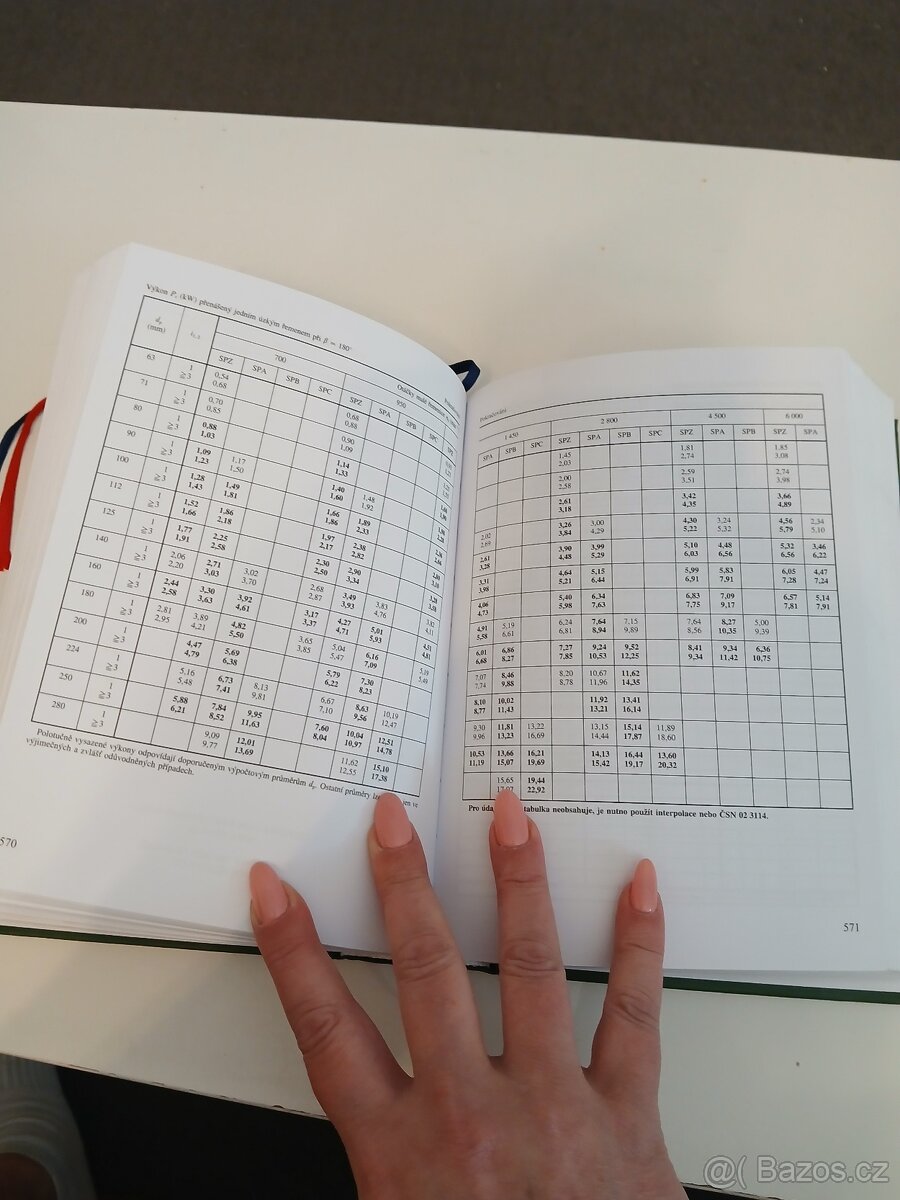 Výkon Pr (kW) přenášený jedním úzkým řemenem při β = 180°
dp (mm) i1,2 Otáčky malé řemenice
700 950
SPZ SPA SPB SPC SPZ SPA SPB SPC
63 1 0,54 0,68
≧3 0,68 0,88
71 1 0,70 0,90
≧3 0,85 1,09
80 1 0,88 1,14
≧3 1,03 1,33
90 1 1,09 1,17 1,40 1,48
≧3 1,23 1,50 1,60 1,92
100 1 1,28 1,49 1,66 1,89
≧3 1,43 1,81 1,86 2,33
112 1 1,52 1,86 1,97 2,38
≧3 1,66 2,18 2,17 2,82
125 1 1,77 2,25 2,30 2,90
≧3 1,91 2,58 2,50 3,34
140 1 2,06 2,71 3,02 2,68 3,49 3,83
≧3 2,20 3,03 3,70 2,87 3,93 4,76
160 1 2,44 3,30 3,92 3,17 4,27 5,01
≧3 2,58 3,63 4,61 3,37 4,71 5,93
180 1 2,81 3,89 4,82 3,65 5,04 6,16
≧3 2,95 4,21 5,50 3,85 5,47 7,09
200 1 4,47 5,69 5,79 7,30
≧3 4,79 6,38 6,22 8,23
224 1 5,16 6,73 8,13 6,67 8,63 10,19
≧3 5,48 7,41 9,81 7,10 9,56 12,47
250 1 5,88 7,84 9,95 7,60 10,04 12,51
≧3 6,21 8,52 11,63 8,04 10,97 14,78
280 1 9,09 12,01 11,62 15,10
≧3 9,77 13,69 12,55 17,38
Polotučně vysazené výkony odpovídají doporučeným výpočtovým průměrům dp. Ostatní průměry jen ve
výjimečných a zvlášť odůvodněných případech.
570
Pokračování
1 450 2 800 4 500 6 000
SPA SPB SPC SPZ SPA SPB SPC SPZ SPA SPB SPZ SPA
1,45 1,81 1,85
2,03 2,74 3,08
2,00 2,59 2,74
2,58 3,51 3,98
2,61 3,42 3,66
3,18 4,35 4,89
2,02 3,26 3,00 4,30 3,24 4,56 2,34
2,69 3,84 4,29 5,22 5,32 5,79 5,10
2,61 3,90 3,99 5,10 4,48 5,32 3,46
3,28 4,48 5,29 6,03 6,56 6,56 6,22
3,31 4,64 5,15 5,99 5,83 6,05 4,47
3,98 5,21 6,44 6,91 7,91 7,28 7,24
4,06 5,40 6,34 6,83 7,09 6,57 5,14
4,73 5,98 7,63 7,75 9,17 7,81 7,91
4,91 5,19 6,24 7,64 7,15 7,64 8,27 5,00
5,58 6,61 6,81 8,94 9,89 8,56 10,35 9,39
6,01 6,86 7,27 9,24 9,52 8,41 9,34 6,36
6,68 8,27 7,85 10,53 12,25 9,34 11,42 10,75
7,07 8,46 8,20 10,67 11,62
7,74 9,88 8,78 11,96 14,35
8,10 10,02 11,92 13,41
8,77 11,43 13,21 16,14
9,30 11,81 13,22 13,15 15,14 11,89
9,96 13,23 16,69 14,44 17,87 18,60
10,53 13,66 16,21 14,13 16,44 13,60
11,19 15,07 19,69 15,42 19,17 20,32
15,65 19,44
22,92
Pro úda tabulka neobsahuje, je nutno použít interpolace nebo ČSN 02 3114.
571
@( Bazos.cz